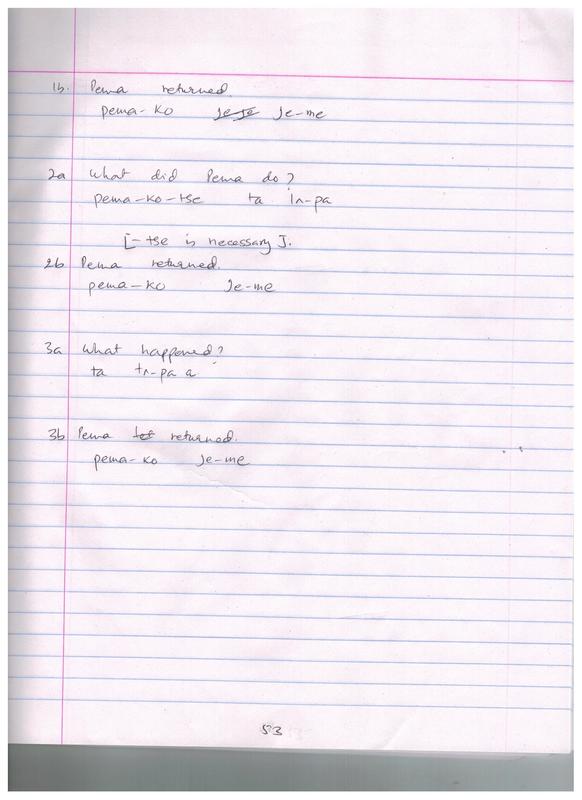 1b. Pema returned.
pema-ko je-me
2a What did Pema do?
pema-ko-tse ta in-pa
[-tse is necessary].
2b Pema returned.
pema-ko je-me
3a What happened?
ta tʌ-pa a
3b Pema returned.
pema-ko je-me
53